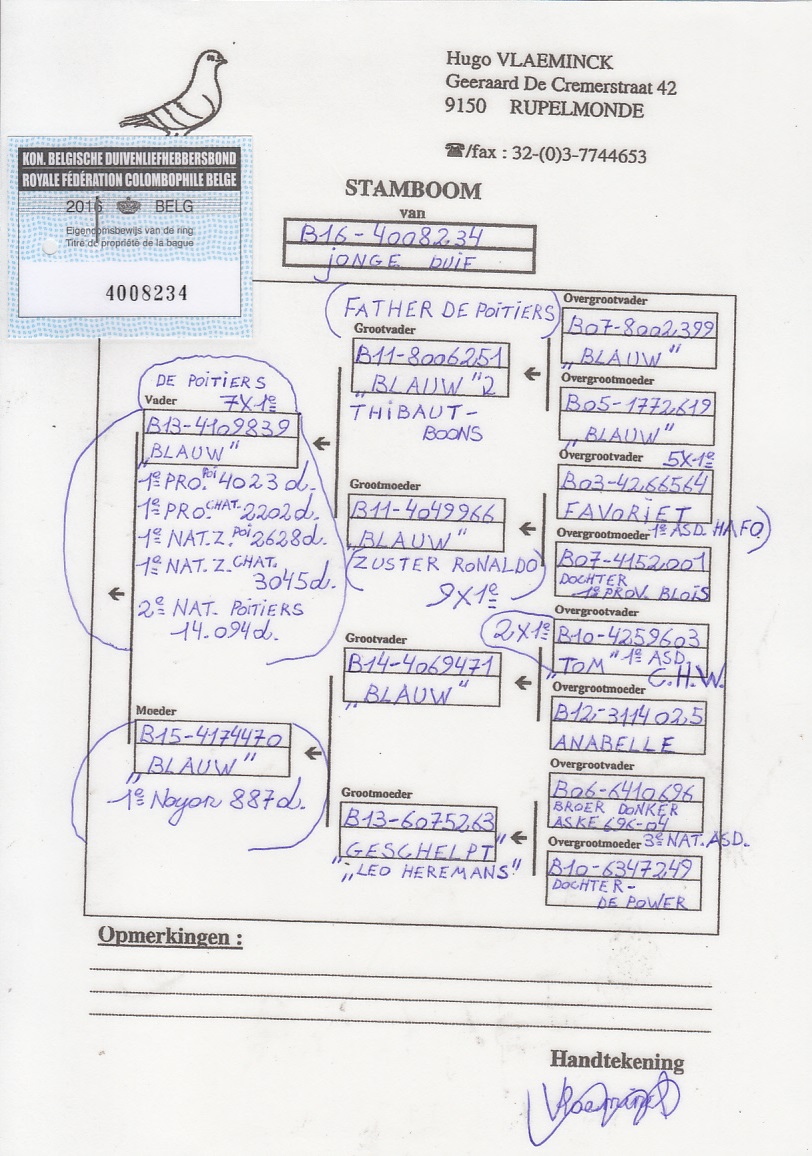 Hugo VLAEMINCK
Geeraard De Cremerstraat 42
9150 RUPELMONDE
☎/fax : 32-(0)3-7744653
KON. BELGISCHE DUIVENLIEFHEBBERSBOND
ROYALE FÉDÉRATION COLOMBOPHILE BELGE
2016 BELG
Eigendomsbewijs van de ring
Titre de propriété de la bague
4008234
STAMBOOM
van
B16-4008234
JONGE DUIF
DE POITIERS
7X1e
Vader
B13-4109839
"BLAUW"
1e PRO. POI 4023 d.
1e PRO. CHAT. 2202 d.
1e NAT. Z. POI 2628 d.
1e NAT. Z. CHAT.
3045 d.
2e NAT. POITIERS
14.094 d.
Moeder
B15-4174470
"BLAUW"
1e Noyon 887 d.
(FATHER DE POITIERS)
Grootvader
B11-8006251
"BLAUW" 2
THIBAUT-
BOONS
Grootmoeder
B11-4049966
"BLAUW"
(ZUSTER RONALDO)
9X1e
Grootvader
B14-4069471
"BLAUW"
Grootmoeder
B13-6075263
GESCHELPT
"LEO HEREMANS"
Overgrootvader
B07-8002399
"BLAUW"
Overgrootmoeder
B05-1772619
"BLAUW"
Overgrootvader 5X1e
B03-4266564
FAVORIET
Overgrootmoeder 1e ASD. HAFO)
B07-4152001
DOCHTER
1e PROV. BLOIS
Overgrootvader
2X1e B10-4259603
"TOM" 1e ASD.
C.H.W.
Overgrootmoeder
B12-3114025
ANABELLE
Overgrootvader
B06-6410696
BROER DONKER
ASKE 696-04
Overgrootmoeder 3e NAT. ASD.
B10-6347249
DOCHTER-
DE POWER
Opmerkingen :
Handtekening
Vlaeminck